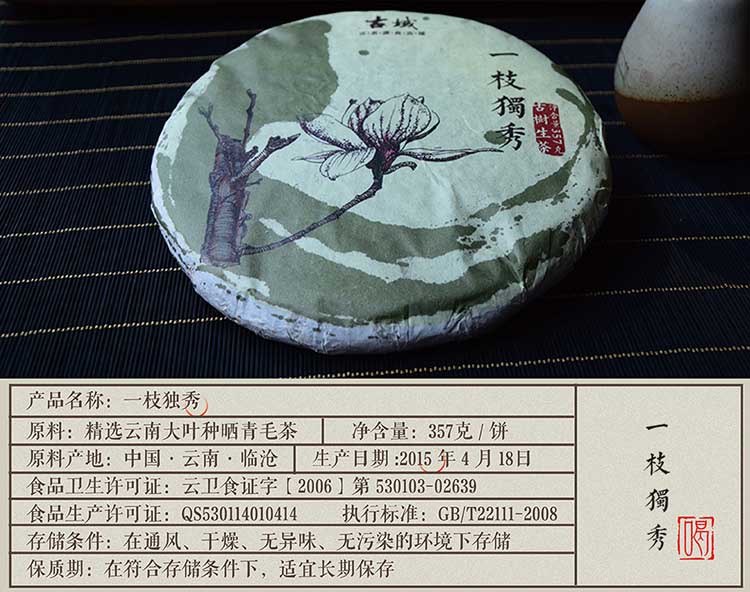 古域®
一枝獨秀
净含量357克
古樹生茶
产品名称：一枝独秀
原料：精选云南大叶种晒青毛茶 净含量：357克 / 饼
原料产地：中国·云南·临沧 生产日期:2015 年 4 月 18日
食品卫生许可证：云卫食证字【2006】第 530103-02639
食品生产许可证：QS530114010414 执行标准：GB/T22111-2008
存储条件：在通风、干燥、无异味、无污染的环境下存储
保质期：在符合存储条件下，适宜长期保存
一枝獨秀
喝